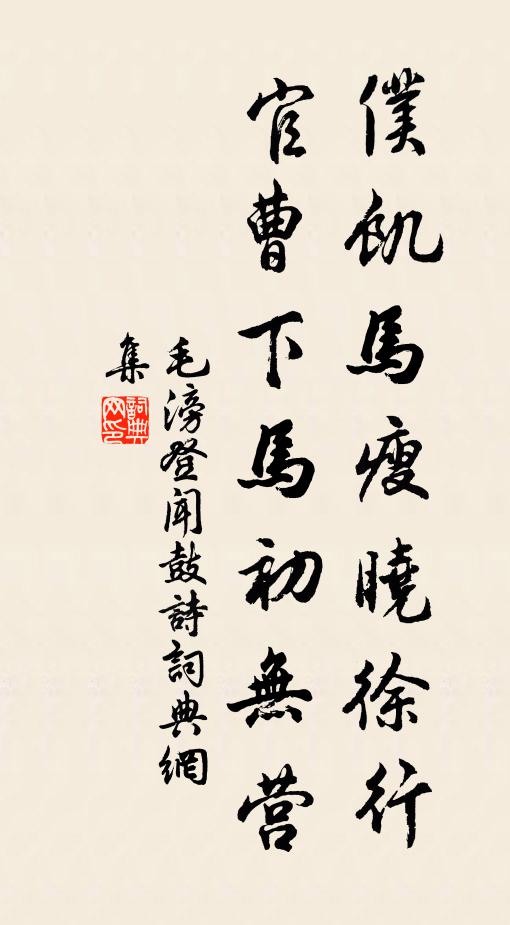 僕飢馬瘦曉徐行
官曹下馬初無营
毛滂登聞鼓詩詞典網
集
詞典網印